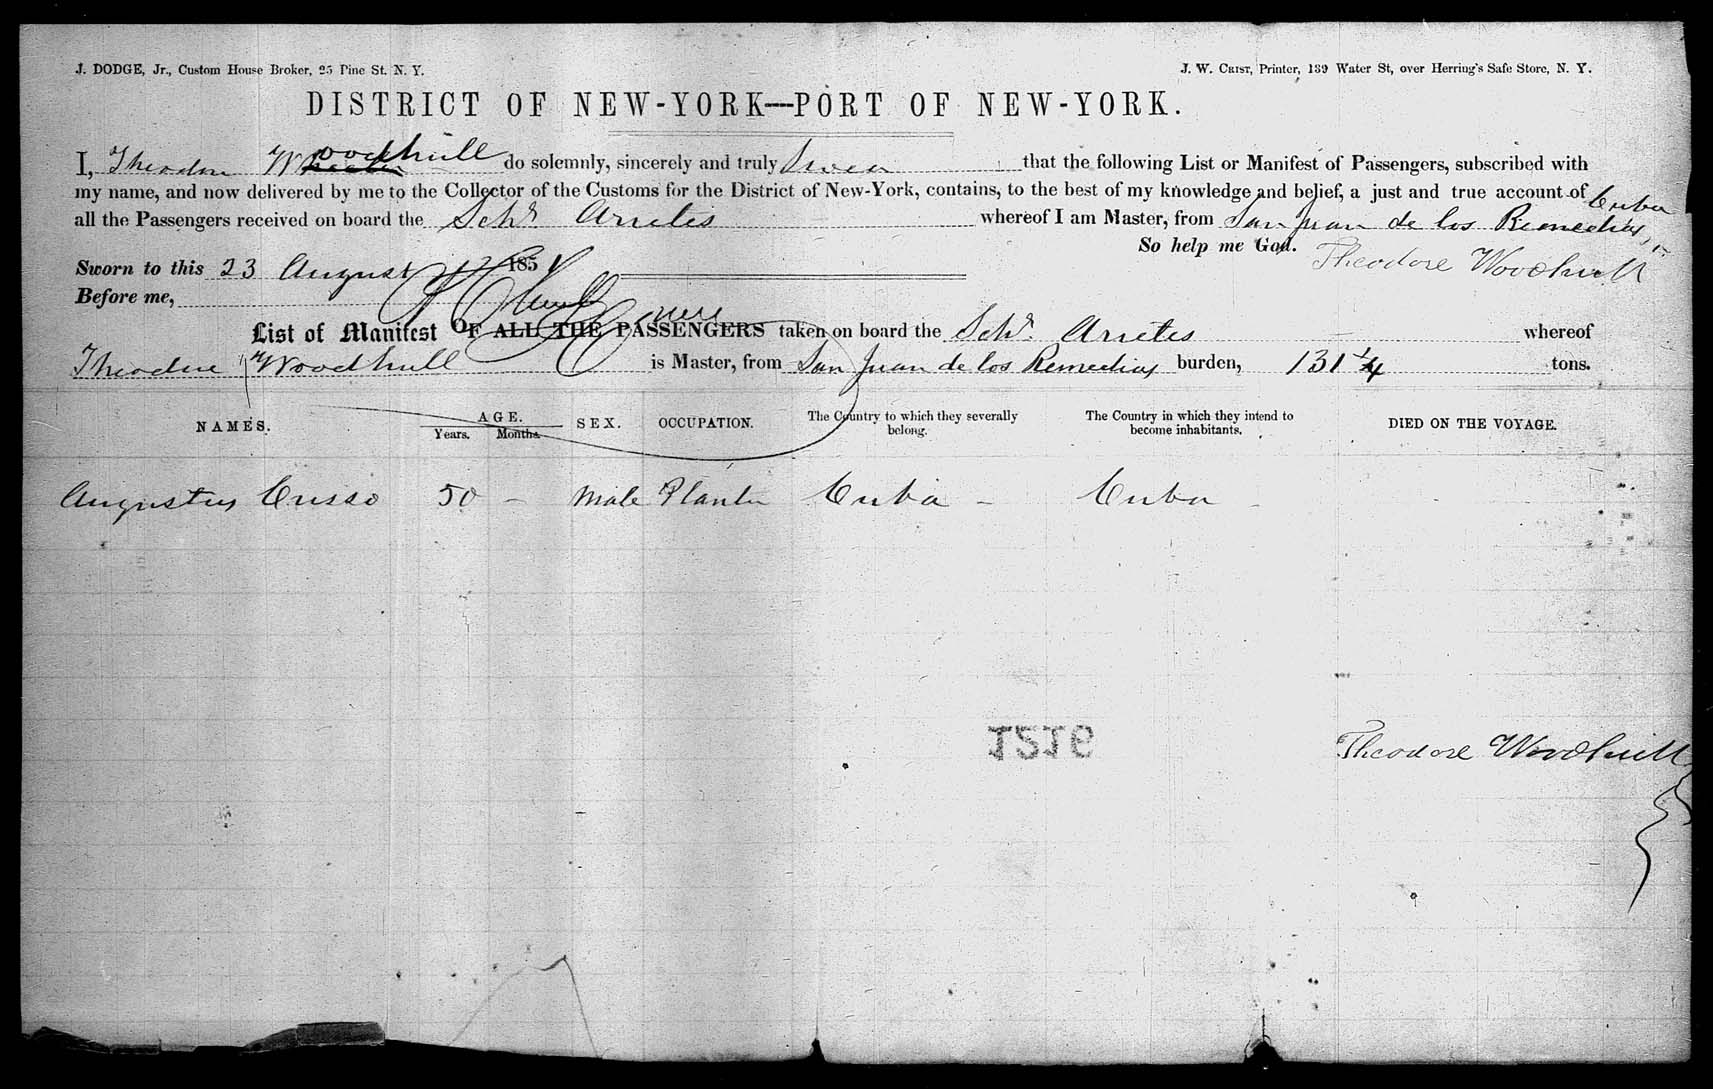 J. DODGE, Jr., Custom House Broker, 25 Pine St. N. Y.
J. W. CRIST, Printer, 139 Water St, over Herring's Safe Store, N. Y.
DISTRICT OF NEW-YORK—PORT OF NEW-YORK.
I, Theodore Woodhull do solemnly, sincerely and truly Swear that the following List or Manifest of Passengers, subscribed with
my name, and now delivered by me to the Collector of the Customs for the District of New-York, contains, to the best of my knowledge and belief, a just and true account of
all the Passengers received on board the Schr Arietis whereof I am Master, from San Juan de los Remedios, Cuba
So help me God. Theodore Woodhull
Sworn to this 23 August 1851
Before me,
List of Manifest OF ALL THE PASSENGERS taken on board the Schr. Arietis whereof
Theodore Woodhull is Master, from San Juan de los Remedios burden, 131 1/4 tons.
NAMES. AGE. Years. Months. SEX. OCCUPATION. The Country to which they severally belong. The Country in which they intend to become inhabitants. DIED ON THE VOYAGE.
Augustus Crisso 50 – Male Planter Cuba – Cuba –
1216
Theodore Woodhull